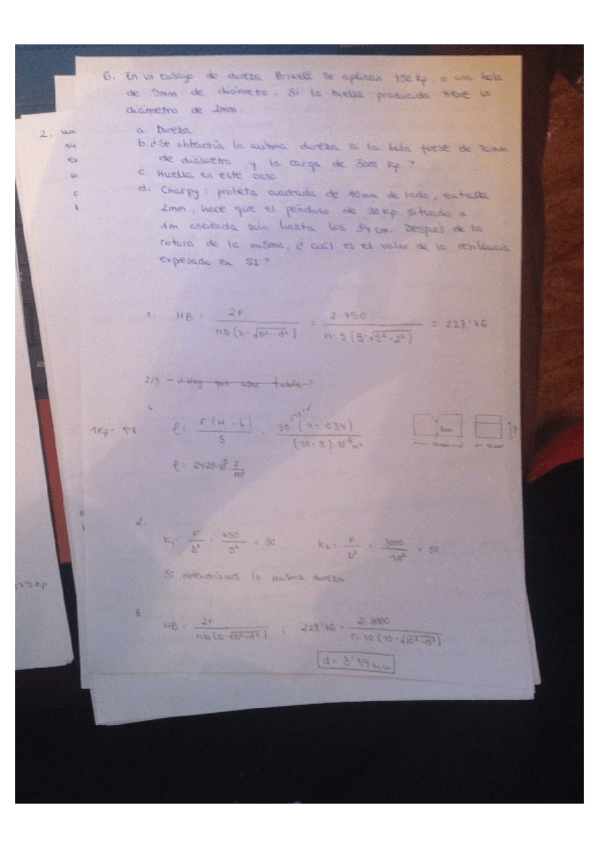 6. En un ensayo de dureza Brinell se aplican 750 Kp. a una bola
de 5mm de diámetro. Si la huella producida tiene un
diámetro de 2mm.
a. Dureza
b. ¿Se obtendría la misma dureza si la bola fuese de 10mm
de diámetro y la carga de 3000 Kp?
c. Huella en este caso
d. Charpy: probeta cuadrada de 10mm de lado, entalla
2mm, hace que el péndulo de 30Kp situado a
1m ascienda solo hasta los 34 cm. Después de la
rotura de la misma, ¿cuál es el valor de la resiliencia
expesado en SI?
1. HB = 2F / πD(D-√D²-d²) = 2·750 / π·5(5-√5²-2²) = 228'76
2/3 -
4.
1Kp = 9'8
ρ = F(H-h) / S = 30 (1-0'34) / (10·8)·10⁻⁶ m²
ρ = 2425·10³ J/m²
2.
K₁ = F/D² = 750/5² = 30 K₂ = F/D² = 3000/10² = 30
Sí obtendríamos la misma dureza
3.
HB = 2F / πD(D-√D²-d²) ; 228'76 = 2·3000 / π·10(10-√10²-d²)
d = 3'99 mm
2.